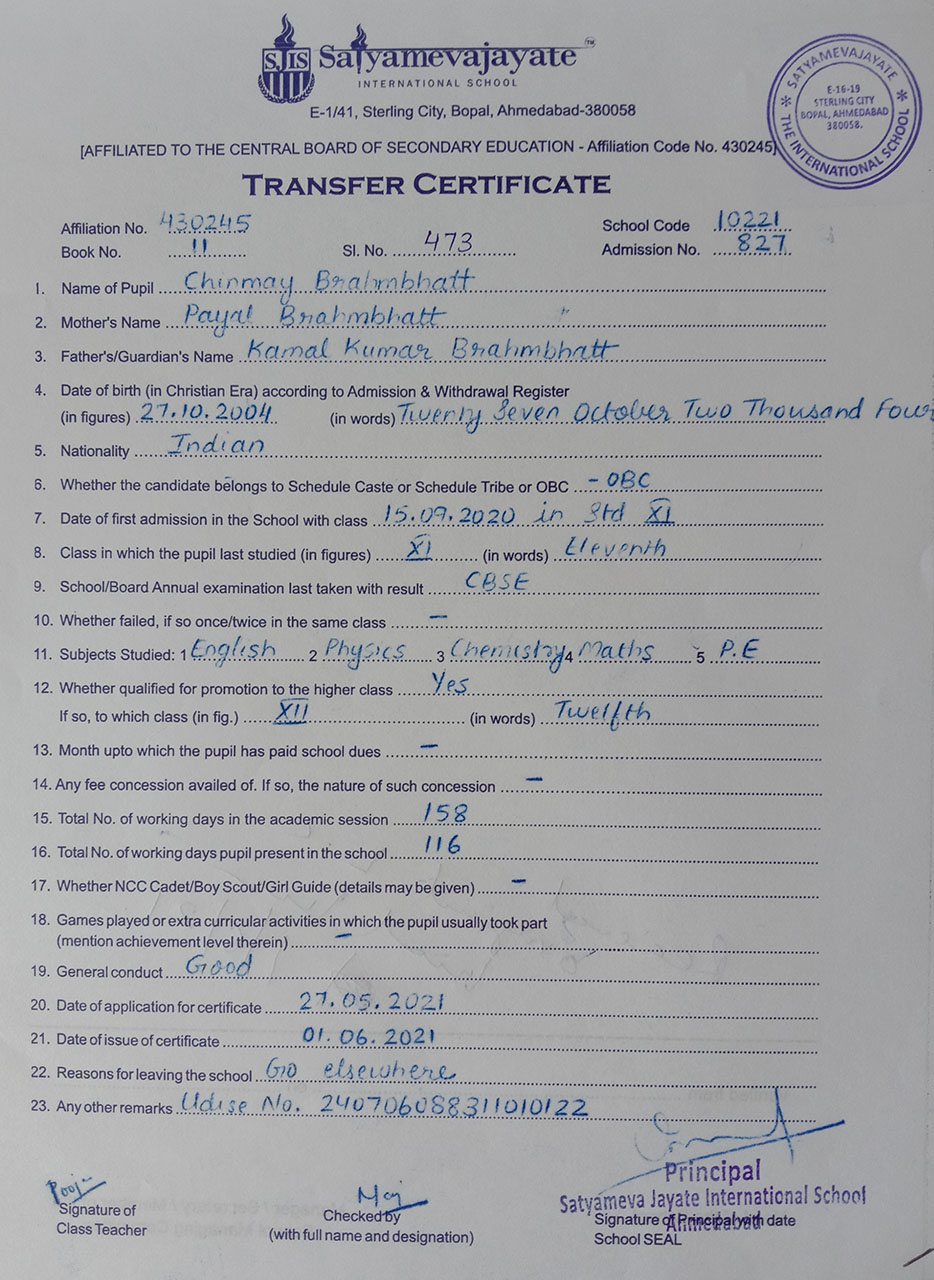 SJIS Satyamevajayate TM
INTERNATIONAL SCHOOL
E-1/41, Sterling City, Bopal, Ahmedabad-380058
SATYAMEVAJAYATE
THE INTERNATIONAL SCHOOL
E-16-19
STERLING CITY
BOPAL, AHMEDABAD
380058.
[AFFILIATED TO THE CENTRAL BOARD OF SECONDARY EDUCATION - Affiliation Code No. 430245]
TRANSFER CERTIFICATE
Affiliation No. 430245 School Code 10221
Book No. 11 Sl. No. 473 Admission No. 827
1. Name of Pupil Chinmay Brahmbhatt
2. Mother's Name Payal Brahmbhatt
3. Father's/Guardian's Name Kamal Kumar Brahmbhatt
4. Date of birth (in Christian Era) according to Admission & Withdrawal Register
(in figures) 27.10.2004 (in words) Twenty Seven October Two Thousand Four
5. Nationality Indian
6. Whether the candidate belongs to Schedule Caste or Schedule Tribe or OBC - OBC
7. Date of first admission in the School with class 15.09.2020 in Std XI
8. Class in which the pupil last studied (in figures) XI (in words) Eleventh
9. School/Board Annual examination last taken with result CBSE
10. Whether failed, if so once/twice in the same class —
11. Subjects Studied: 1 English 2 Physics 3 Chemistry 4 Maths 5 P.E
12. Whether qualified for promotion to the higher class Yes
If so, to which class (in fig.) XII (in words) Twelfth
13. Month upto which the pupil has paid school dues —
14. Any fee concession availed of. If so, the nature of such concession —
15. Total No. of working days in the academic session 158
16. Total No. of working days pupil present in the school 116
17. Whether NCC Cadet/Boy Scout/Girl Guide (details may be given) —
18. Games played or extra curricular activities in which the pupil usually took part
(mention achievement level therein) —
19. General conduct Good
20. Date of application for certificate 27.05.2021
21. Date of issue of certificate 01.06.2021
22. Reasons for leaving the school Go elsewhere
23. Any other remarks Udise No. 240706088311010122
Principal
Satyameva Jayate International School
Ahmedabad
Signature of
Class Teacher
Checked by
(with full name and designation)
Signature of Principal with date
School SEAL